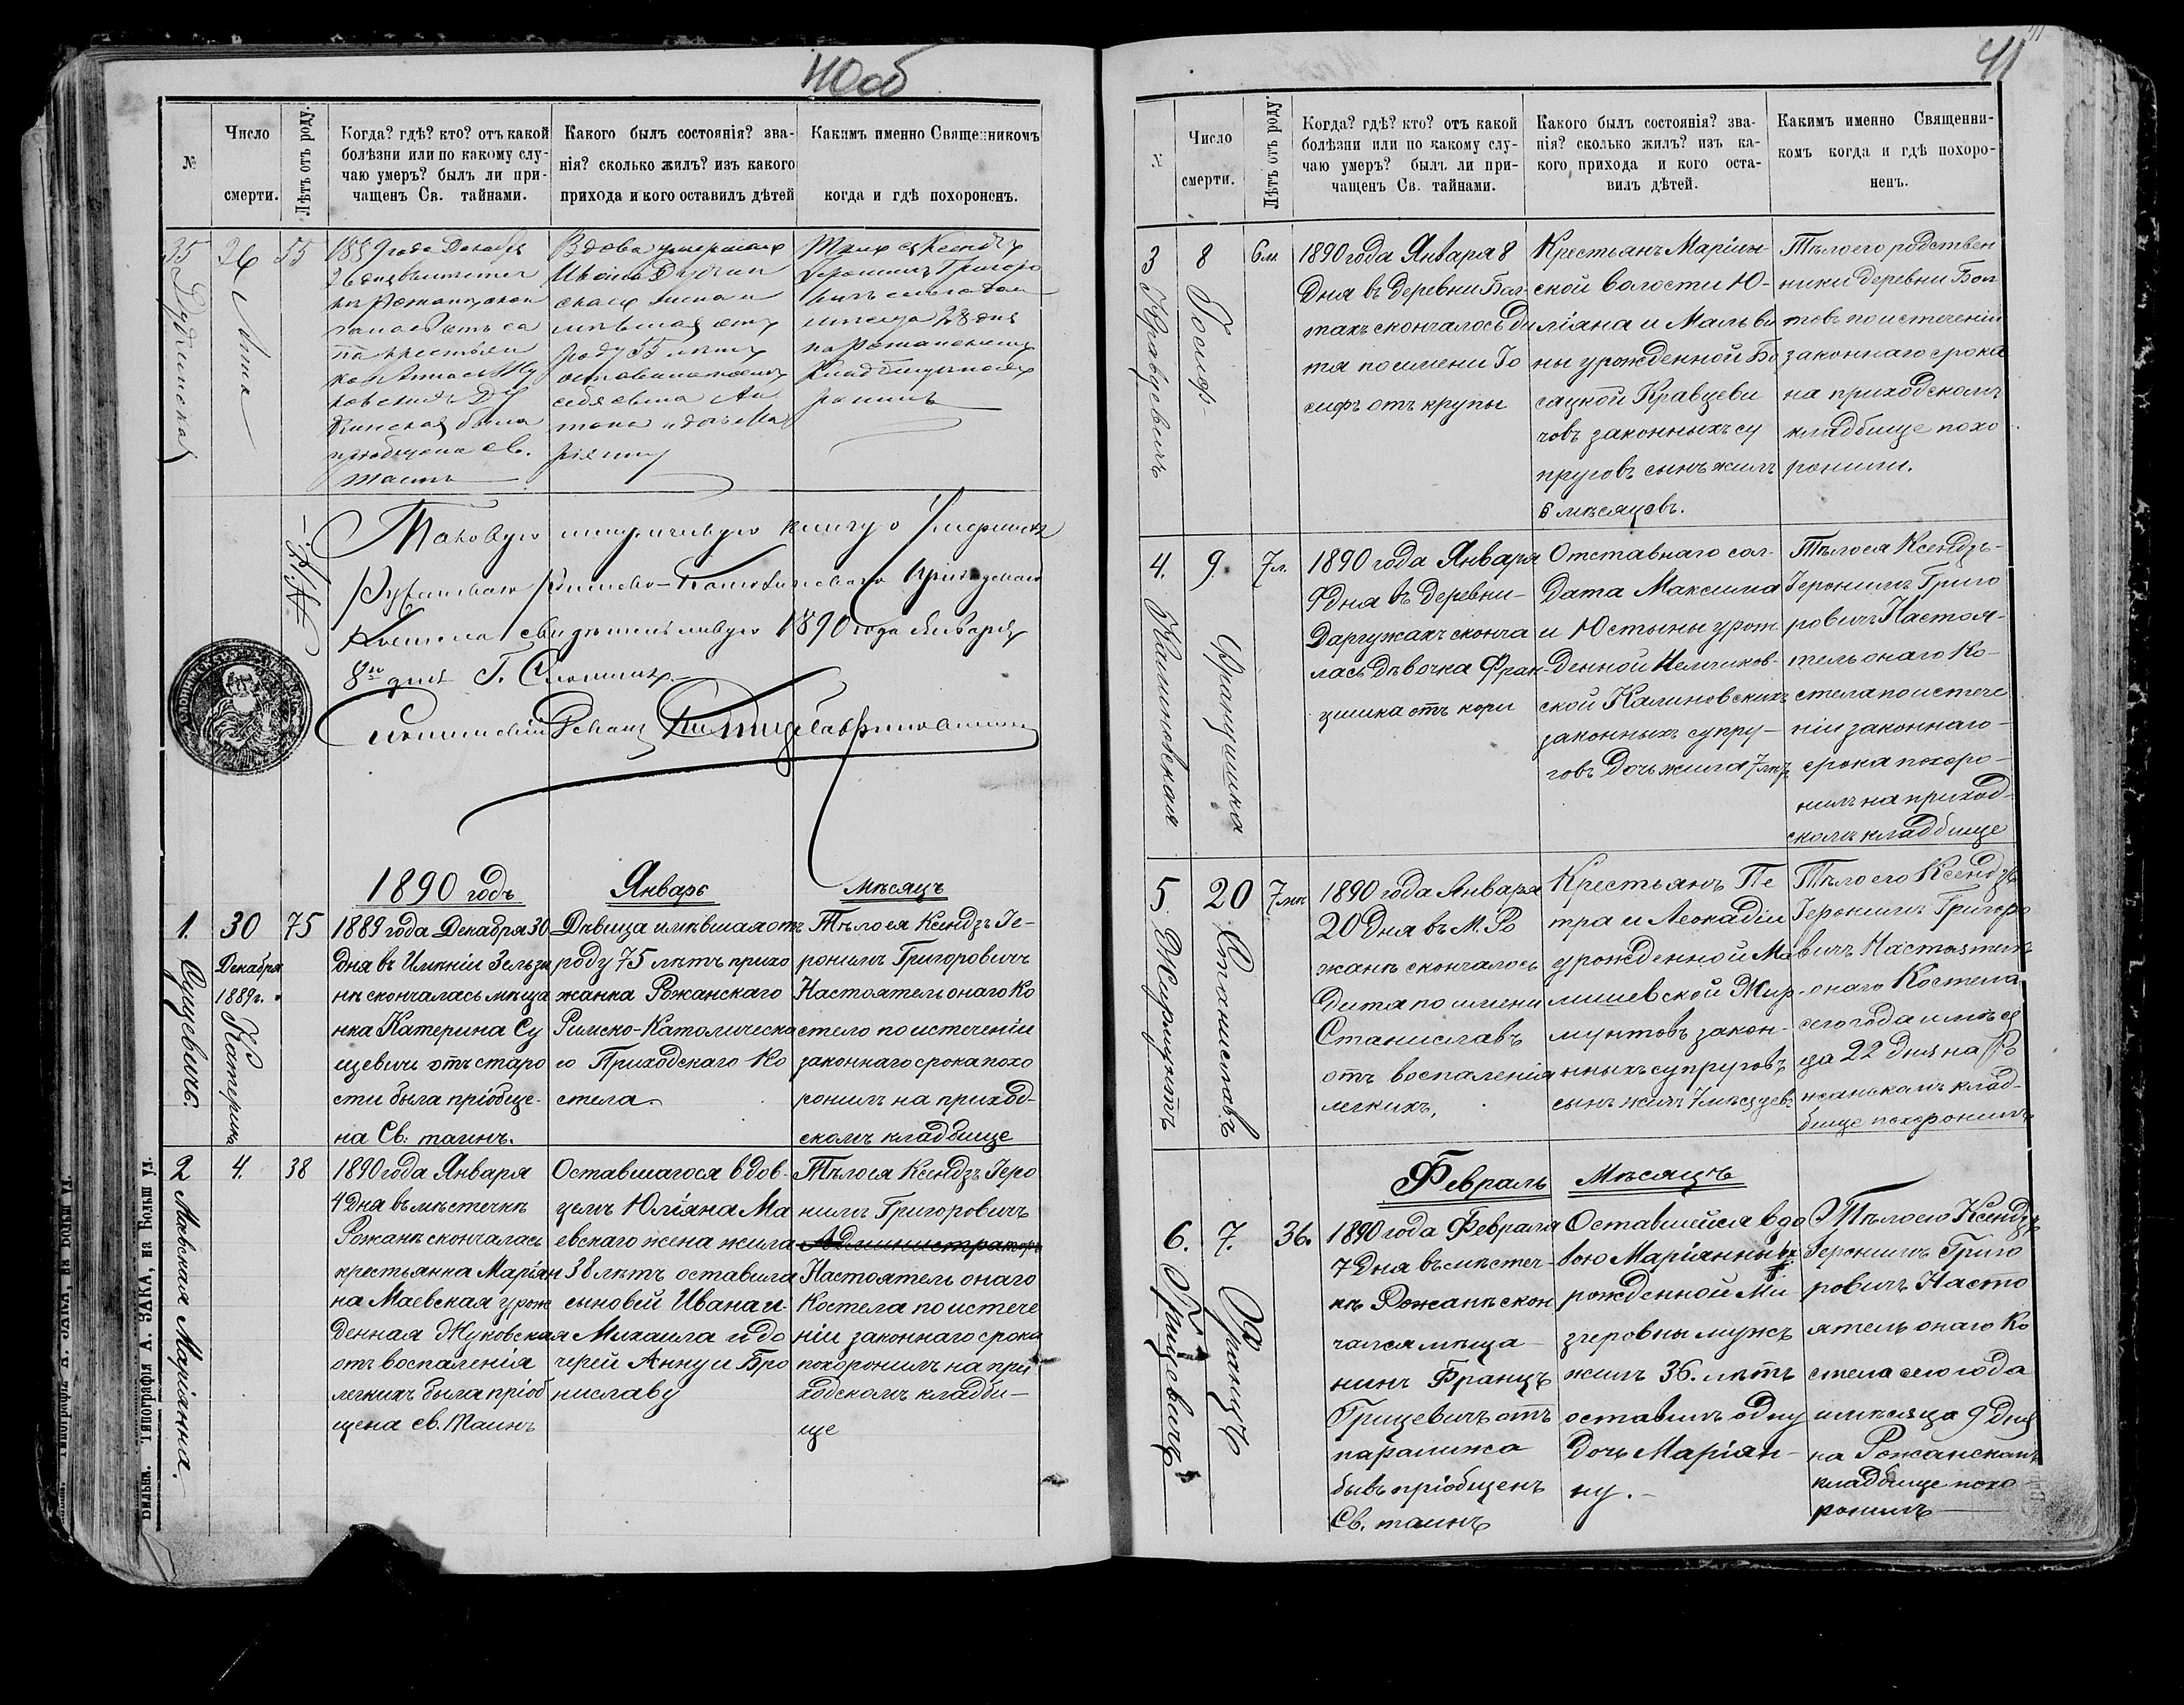 40об
№
Число
смерти.
Лѣтъ отъ роду.
Когда? гдѣ? кто? отъ какой
болѣзни или по какому слу-
чаю умеръ? былъ ли при-
чащенъ Св. тайнами.
Какого былъ состоянія? зва-
нія? сколько жилъ? изъ какого
прихода и кого оставилъ дѣтей
Какимъ именно Священникомъ
когда и гдѣ похороненъ.
35
26
55
Дудзинская
Анна
1889 года Декабря
26 дня
Вдова
28 дня
роду 55 лѣтъ
Таковую метрическую книгу Умершихъ
Римско-Католическаго Приходскаго
Костела свидѣтельствую 1890 года Января
8го дня Г. Слонимъ
1890 годъ Январь мѣсяцъ
1.
30
Декабря
1889г.
75
Сущевичъ.
Катерина
1889 года Декабря 30
дня въ Имѣніи Зельзи
нѣ скончалась мѣща
нка Катерина Су
щевичъ отъ старо
сти была пріобще-
на Св. таинъ.
Дѣвица имѣвшая отъ
роду 75 лѣтъ прихо
жанка Рожанскаго
Римско-Католическа
го Приходскаго Ко
стела.
Тѣло ея Ксендзъ Іе-
ронимъ Григоровичъ
Настоятель онаго Ко
стело по истеченіи
законнаго срока похо
ронилъ на приход-
скомъ кладбище
2
4.
38
Маевская Маріанна.
1890 года Января
4 дня въ мѣстечкѣ
Рожанѣ скончалась
крестьянка Маріян
на Маевская урож
денная Жуковская
отъ воспаленія
легкихъ была пріоб
щена св. Таинъ
Оставшагося вдов-
цемъ Юліяна Ма
евскаго жена жила
38 лѣтъ оставила
сыновей Ивана и
Михаила и до
черей Анну и Бро
ниславу
Тѣло ея Ксендзъ Іеро
нимъ Григоровичъ
Администраторъ
Настоятель онаго
Костела по истече
ніи законнаго срока
похоронилъ на при
ходскомъ кладби-
ще
Вильна. Типографія А. ЗАКА, на Больш ул.
41
№
Число
смерти.
Лѣтъ отъ роду.
Когда? гдѣ? кто? отъ какой
болѣзни или по какому слу-
чаю умеръ? былъ ли при-
чащенъ Св. тайнами.
Какого былъ состоянія? зва-
нія? сколько жилъ? изъ ка-
кого прихода и кого оста-
вилъ дѣтей.
Какимъ именно Священни-
комъ когда и гдѣ похоро-
ненъ.
3
8
6м
Кравцевичъ
Іосифъ
1890 года Января 8
дня въ деревни Бол-
тахъ скончалось ди
тя по имени Іо
сифъ отъ крупы
Крестьянъ Маріин
ской волости Ю-
ліяна и Мальви
ны урожденной Бо
сацкой Кравцеви
човъ законныхъ су
пруговъ сынъ жилъ
6 мѣсяцовъ.
Тѣло его родствен
ники деревни Бол
товъ по истеченіи
законнаго срока
на приходскомъ
кладбище похо
ронили.
4.
9.
7л.
Калиновская
Францишка
1890 года Января
9 дня въ деревни-
Даргужахъ сконча
лась дѣвочка Фран-
цишка отъ кори
Отставнаго сол-
дата Максима
и Юстыны урож
денной Немчинов-
ской Калиновскихъ
законныхъ супру-
говъ дочь жила 7 лѣтъ
Тѣло ея Ксендзъ-
Іеронимъ Григо
ровичъ Настоя-
тель онаго Ко-
стела по истече
ніи законнаго-
срока похоро-
нилъ на приход-
скомъ кладбище
5.
20
7мѣс
Жирмунтъ
Станиславъ
1890 года Января
20 дня въ М. Ро
жанѣ скончалось
дитя по имени
Станиславъ
отъ воспаленія
легкихъ.
Крестьянъ Пе
тра и Леокадіи
урожденной Ма
лишевской Жир-
мунтовъ закон-
ныхъ супруговъ
сынъ жилъ 7 мѣсяцевъ
Тѣло его Ксендзъ
Іеронимъ Григоро
вичъ Настоятель
онаго Костела
сего года и мѣся
ца 22 дня на Ро
жанскомъ клад-
бище похоронилъ
Февраль Мѣсяцъ
6.
7.
36.
Грицевичъ
Францъ
1890 года Февраля
7 дня въ мѣстеч-
кѣ Рожанѣ скон
чался мѣща-
нинъ Францъ
Грицевичъ отъ
паралижа
бывъ пріобщенъ
Св. таинъ
Оставшейся вдо
вою Маріанны у
рожденной Ми
згеровны мужъ
жилъ 36. лѣтъ
оставилъ одну
дочь Маріан-
ну.-
Тѣло его Ксендзъ
Іеронимъ Григо
ровичъ Насто
ятель онаго Ко
стела сего года
и мѣсяца 9 дня
на Рожанскомъ
кладбище похо
ронилъ